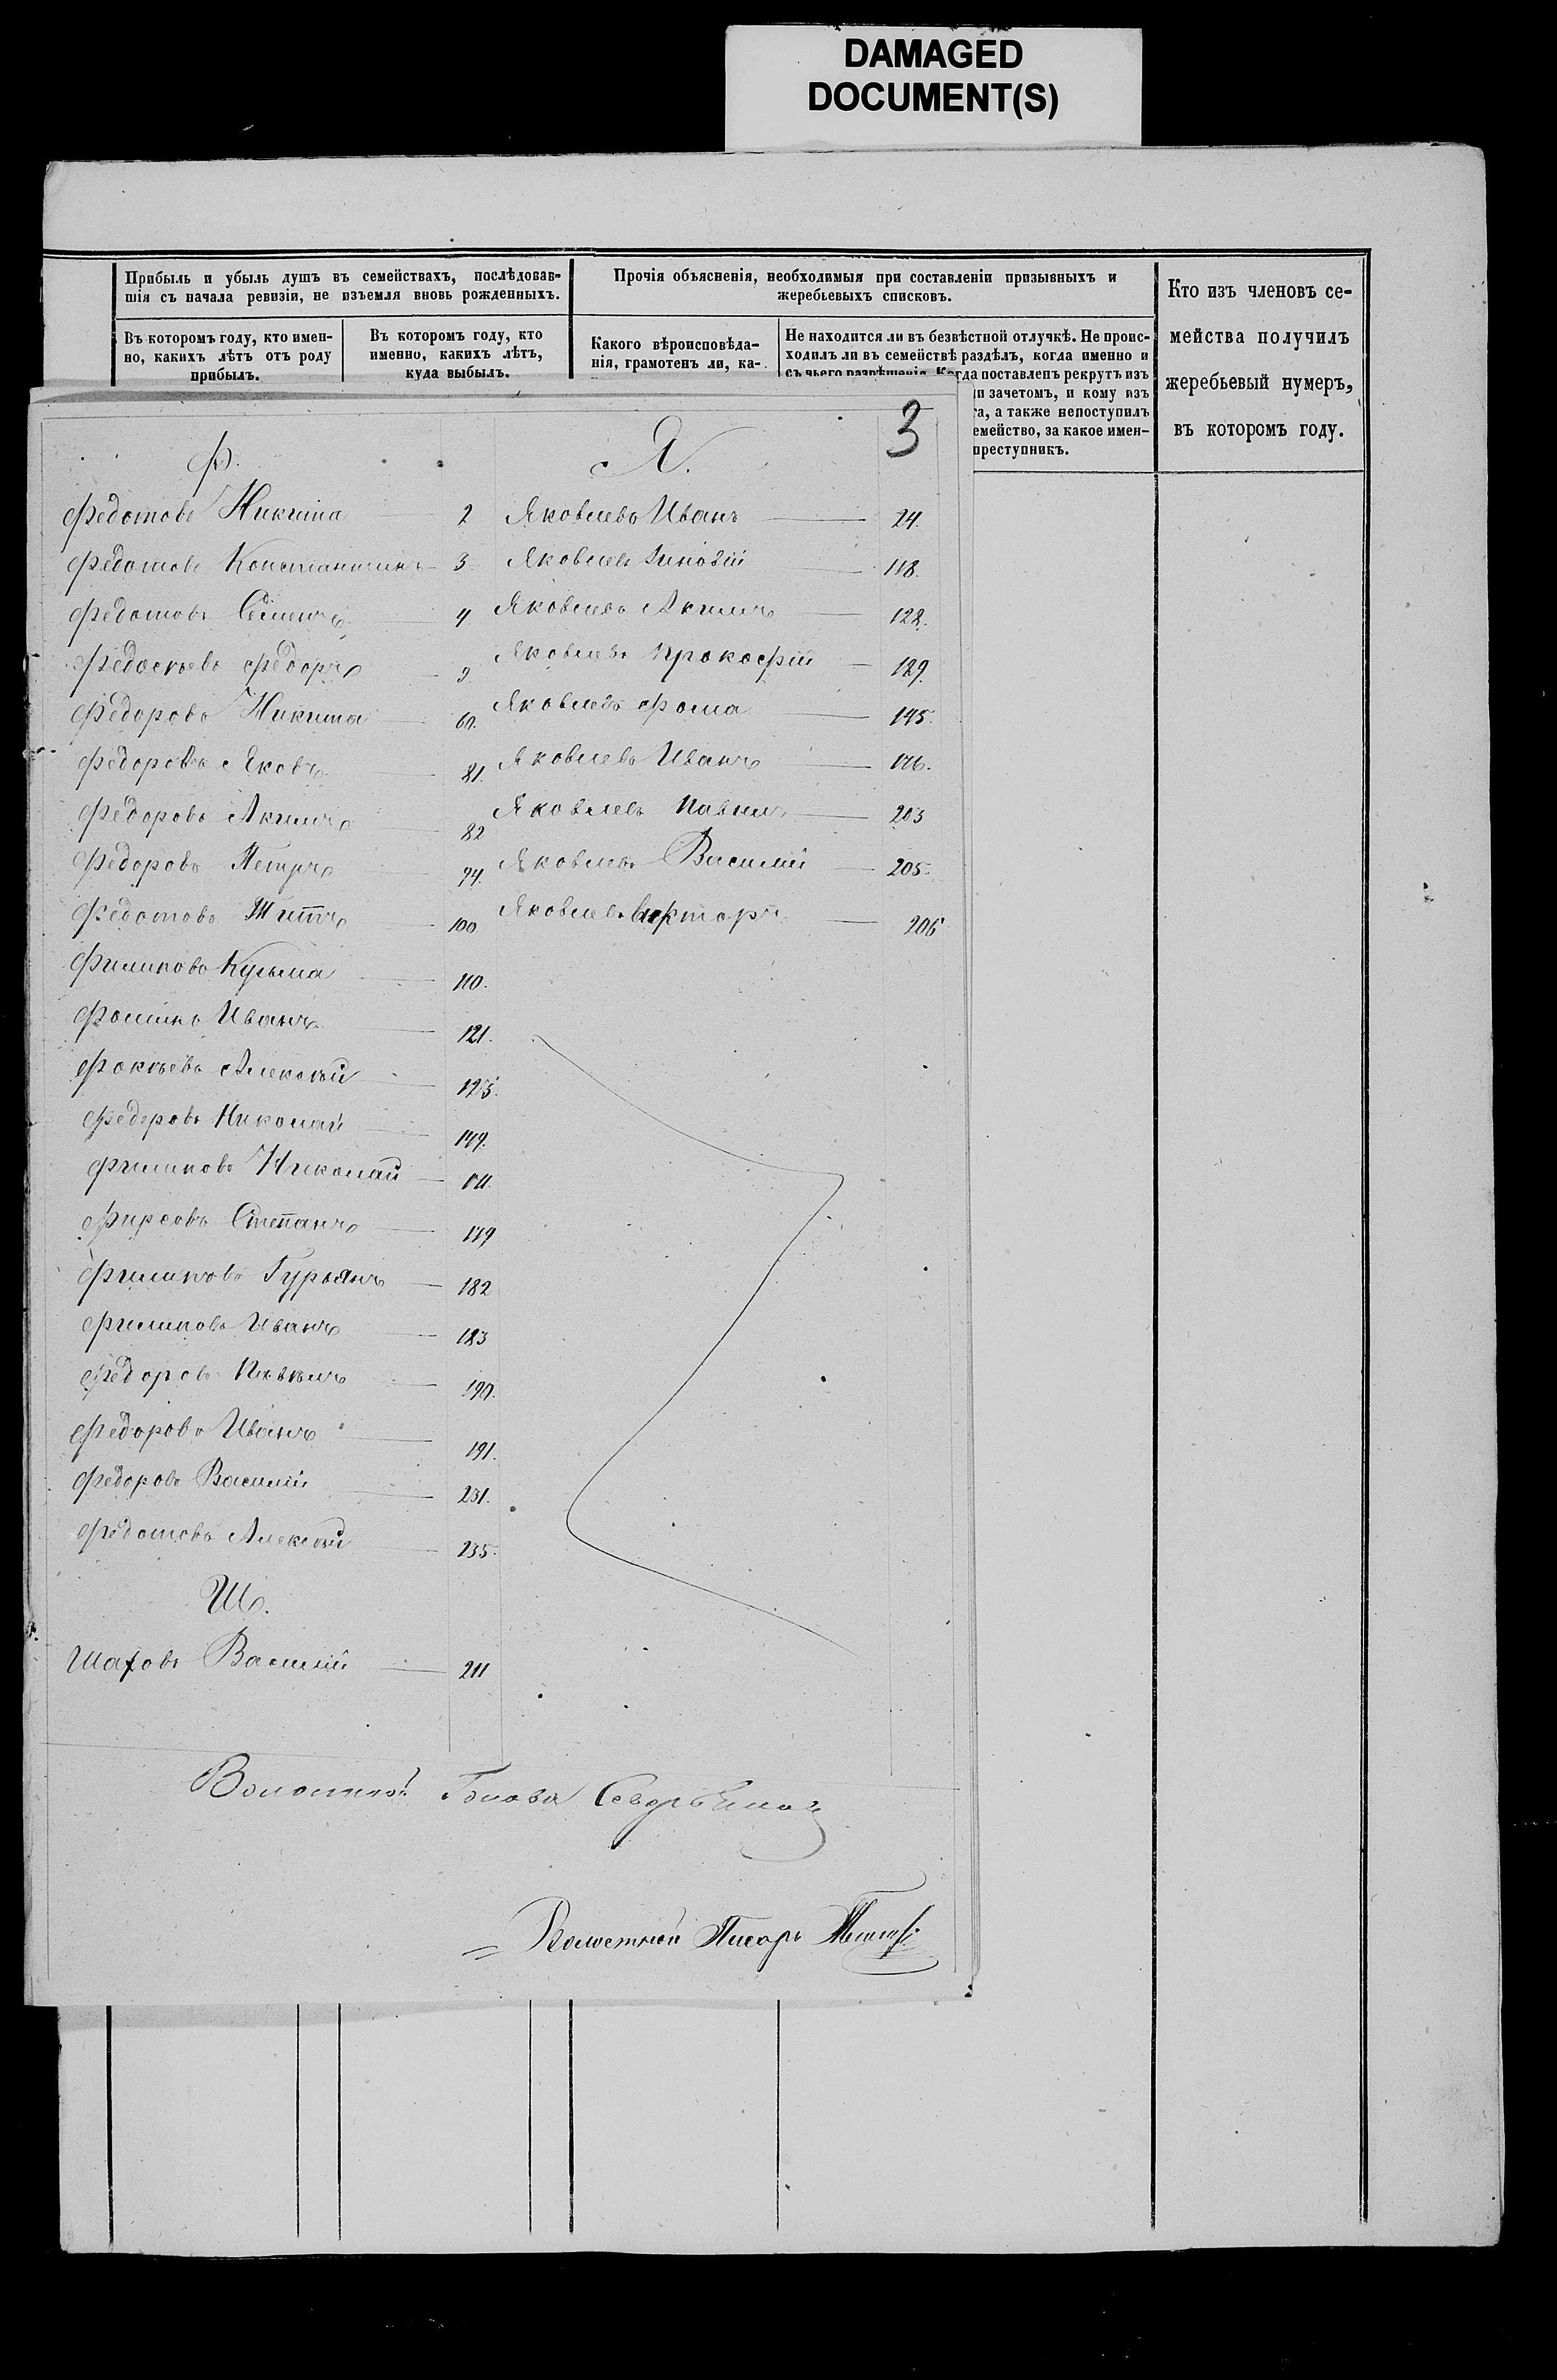 DAMAGED
DOCUMENT(S)
Прибыль и убыль душъ въ семействахъ, послѣдовав-
шія съ начала ревизіи, не изъемля вновь рожденныхъ.
Въ которомъ году, кто имен-
но, какихъ лѣтъ отъ роду
прибылъ.
Въ которомъ году, кто
именно, какихъ лѣтъ,
куда выбылъ.
Прочія объясненія, необходимыя при составленіи призывныхъ и
жеребьевыхъ списковъ.
Какого вѣроисповѣда-
нія, грамотенъ ли, ка-
Не находится ли въ безвѣстной отлучкѣ. Не проис-
ходилъ ли въ семействѣ раздѣлъ, когда именно и
съ чьего разрѣшенія. Когда поставленъ рекрутъ изъ
ли зачетомъ, и кому изъ
та, а также непоступилъ
емейство, за какое имен-
преступникъ.
Кто изъ членовъ се-
мейства получилъ
жеребьевый нумеръ,
въ которомъ году.
3
Ф.
Федотовъ Никита 2
Федотовъ Константинъ 3
Федотовъ Семенъ 4
Федосѣевъ Федоръ 9
Федоровъ Никита 60.
Федоровъ Яковъ 81.
Федоровъ Акимъ 82
Федоровъ Петръ 94.
Федотовъ Титъ 100
Филиповъ Кузьма 110.
Фоминъ Иванъ 121.
Фокѣевъ Алексѣй
Федоровъ Николай 149.
Филиповъ Николай
Фирсовъ Степанъ 179
Филиповъ Гурьянъ 182
Филиповъ Иванъ 183
Федоровъ Павелъ 190.
Федоровъ Иванъ 191.
Федоровъ Василій 231.
Федотовъ Алексѣй 235.
Ш.
Шаховъ Василій 211
Я.
Яковлевъ Иванъ 24.
Яковлевъ Зиновій 118.
Яковлевъ Акимъ 128.
Яковлевъ Прокофій 129.
Яковлевъ Фома 145.
Яковлевъ Иванъ 146.
Яковлевъ Павелъ 203
Яковлевъ Василій 205.
Яковлевъ Викторъ 206
Волостной Голова
Волостной Писарь